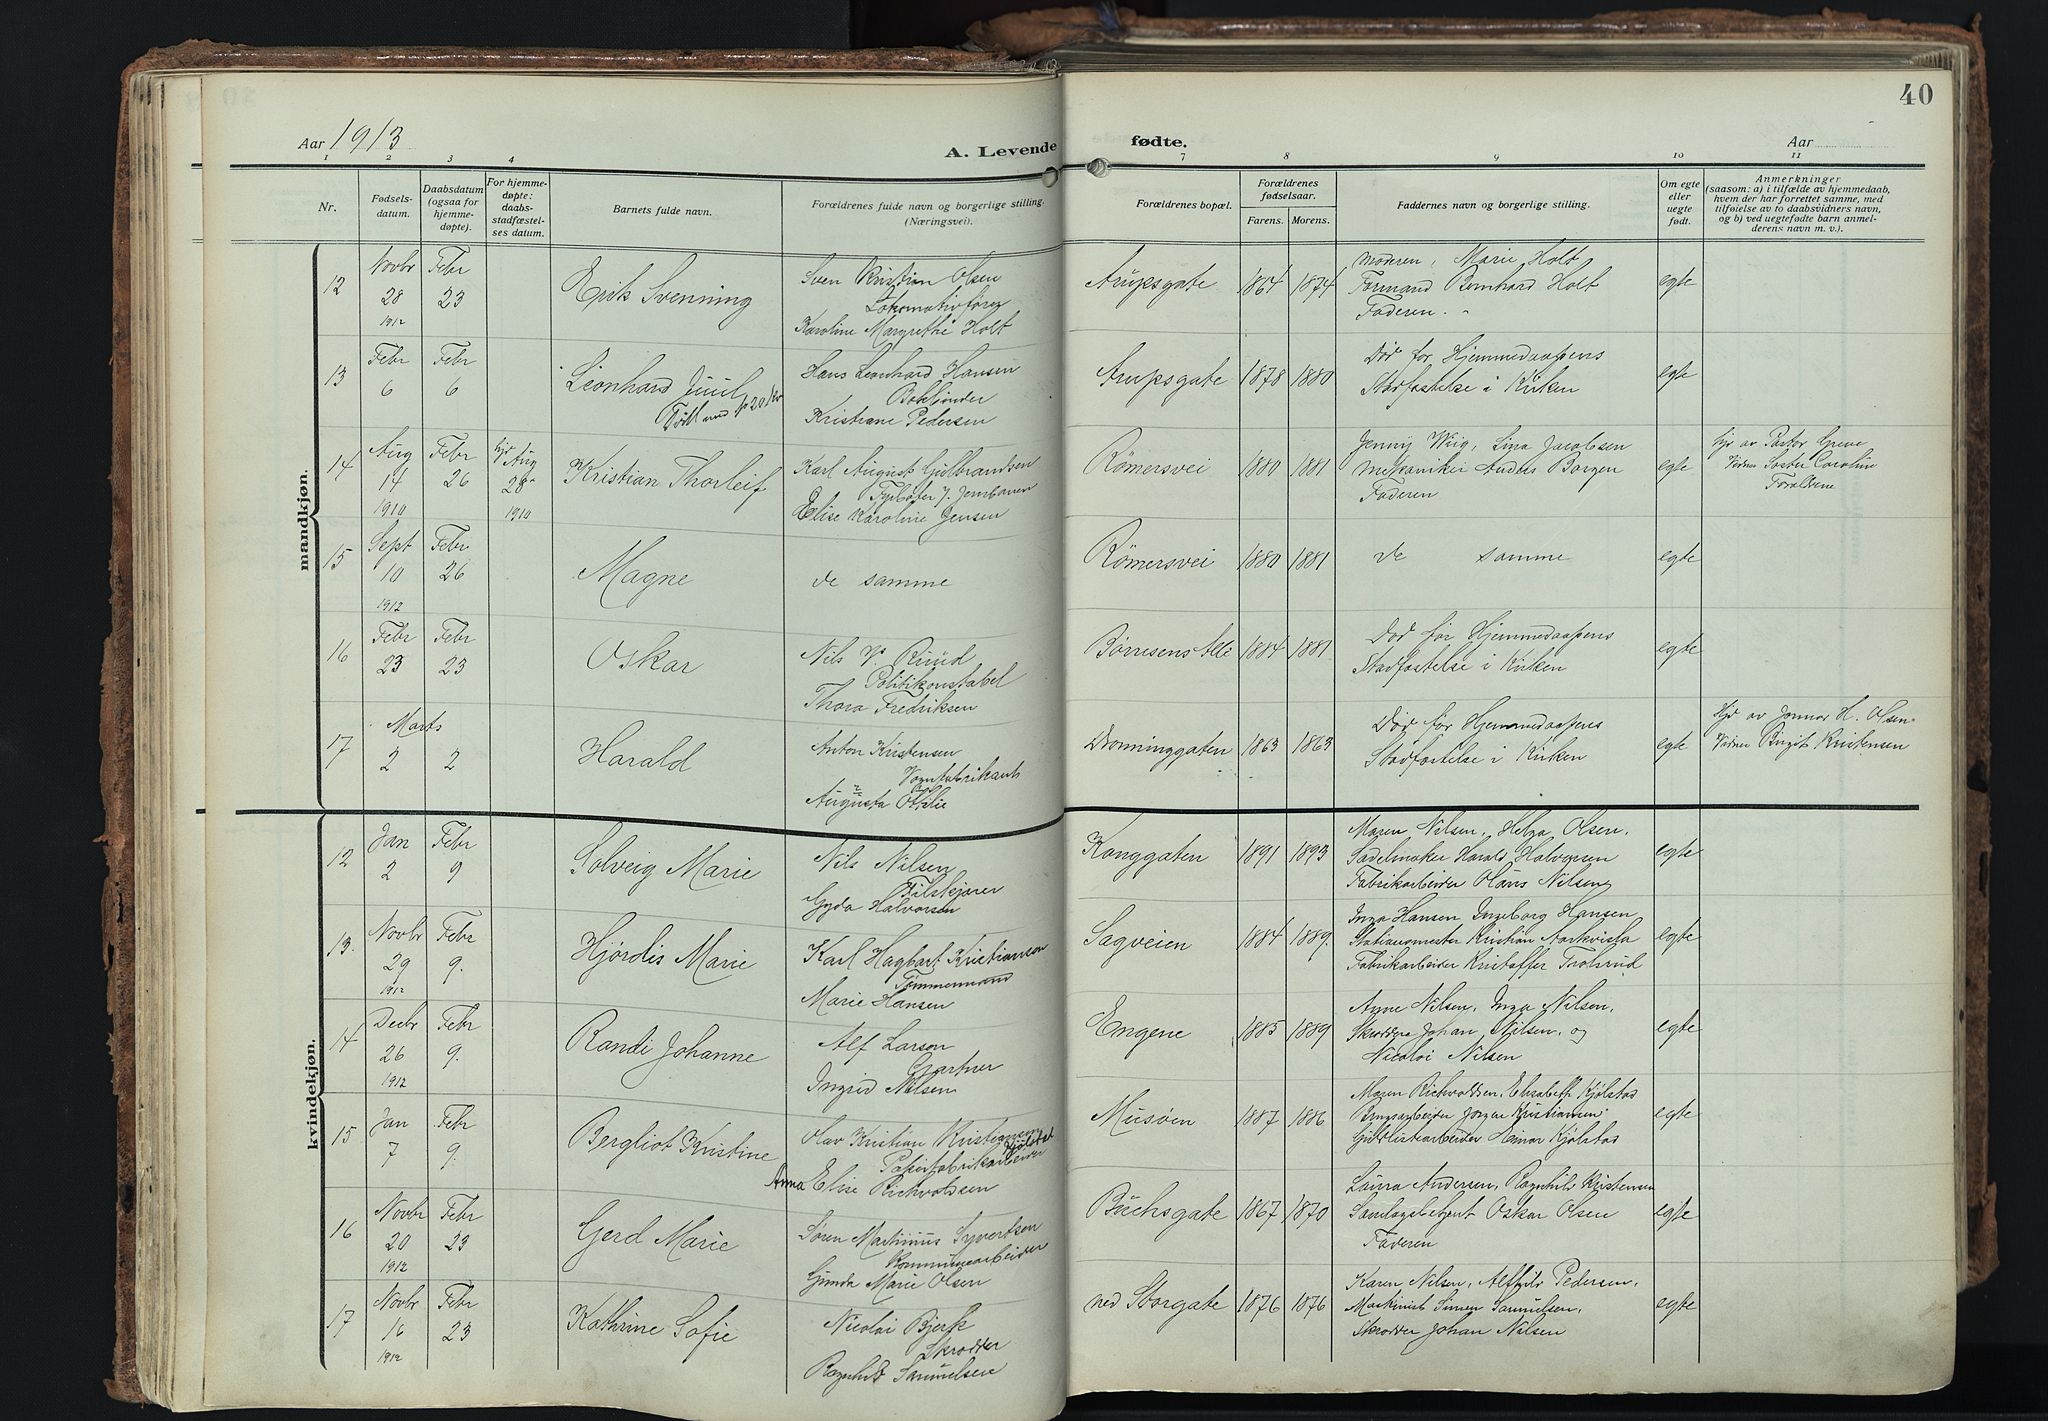 40
Aar 1913
A. Levende fødte.
Aar
1 2 3 4 7 8 9 10 11
Nr.
Fødsels-
datum.
Daabsdatum
(ogsaa for
hjemme-
døpte).
For hjemme-
døpte:
daabs-
stadfæstel-
ses datum.
Barnets fulde navn.
Forældrenes fulde navn og borgerlige stilling.
(Næringsvei).
Forældrenes bopæl.
Forældrenes
fødselsaar.
Farens. Morens.
Faddernes navn og borgerlige stilling.
Om egte
eller
uegte
født.
Anmerkninger
(saasom: a) i tilfælde av hjemmedaab,
hvem der har forrettet samme, med
tilføielse av to daabsvidners navn,
og b) ved uegtefødte barn anmel-
derens navn m. v.).
mandkjøn.
12 Novbr 28 1912 Febr 23
Erik Svenning
Sven Kristian Olsen
Lokomotivfører
Karoline Margrethe Holt
Arupsgate 1864 1874
Moderen, Marie Holt
Formand Bernhard Holt
Faderen.
egte
13 Febr 6 Febr 6
Leonhard Juul
Hans Leonhard Hansen
Bokbinder
Kristiane Pedersen
Arupsgate 1878 1880
Død før Hjemmedaapens
Stadfæstelse i Kirken
egte
14 Aug 14 1910 Febr 26 Aug 28 1910
Kristian Thorleif
Karl August Gulbrandsen
Fyrbøter v. Jernbanen
Elise Karoline Jensen
Römersvei 1880 1881
Jenny Wiig, Lina Jacobsen
Mekaniker Anders Borgen
Faderen
egte
Hjd av Pastor Greve
Vidner Søster Caroline
Forældrene
15 Sept 10 1912 Febr 26
Magne
de samme
Römersvei 1880 1881
de samme
egte
16 Febr 23 Febr 23
Oskar
Nils V. Ruud
Politikonstabel
Thora Fredriksen
Børresens Alle 1884 1881
Død før Hjemmedaapens
Stadfæstelse i Kirken
egte
17 Marts 2 2
Harald
Anton Kristensen
Vognfabrikant
Augusta Othilie
Dronninggaten 1863 1863
Død før Hjemmedaapens
Stadfæstelse i Kirken
egte
Hjd av H. Olsen
Vidner Birgit Kristensen
kvindekjøn.
12 Jan 2 Febr 9
Solveig Marie
Nils Nilsen
Filskjærer
Gyda Halvorsen
Konggaten 1891 1893
Maren Nilsen, Helga Olsen,
Sadelmaker Harald Halvorsen
Fabrikarbeider Hans Nilsen
egte
13. Novbr 29 1912 Febr 9.
Hjørdis Marie
Karl Hagbart Kristiansen
Tømmermand
Marie Hansen
Sagveien 1884 1889.
Inga Hansen, Ingeborg Hansen
Stationsmester Kristian
Fabrikarbeider Kristoffer
egte
14 Decbr 26 1912 Febr 9.
Randi Johanne
Alf Larson
Gartner
Ingrid Nilsen
Engene 1885 1889
Anne Nilsen, Inga Nilsen,
Skrædder Johan Nilsen, og
Nicolai Nilsen
egte
15 Jan 7 Febr 9.
Bergliot Kristine
Olav Kristian Kristiansen
Kjølstad
Papirfabrikarbeider
Anna Elise Rickvoldsen
Musøen 1887 1886
Maren Rickvoldsen, Elisabeth Kjølstad
Brugsarbeider Jørgen Kristiansen
Guldlistearbeider Einar Kjølstad
egte
16 Novbr 20 1912 Febr 23
Gerd Marie
Søren Martinius Syvertsen
Kommunearbeider
Gunda Marie Olsen
Buchsgate 1867 1870
Laura Andersen, Ragnhild Kristensen
Oskar Olsen
Faderen
egte
17 Novbr 16 1912 Febr 23
Kathrine Sofie
Nicolai Bjerk
Skrædder
Ragnhild Samuelsen
ned Storgate 1876 1876
Karen Nilsen, Alfhild Pedersen,
Maskinist Simen Samuelsen,
Skrædder Johan Nilsen
egte